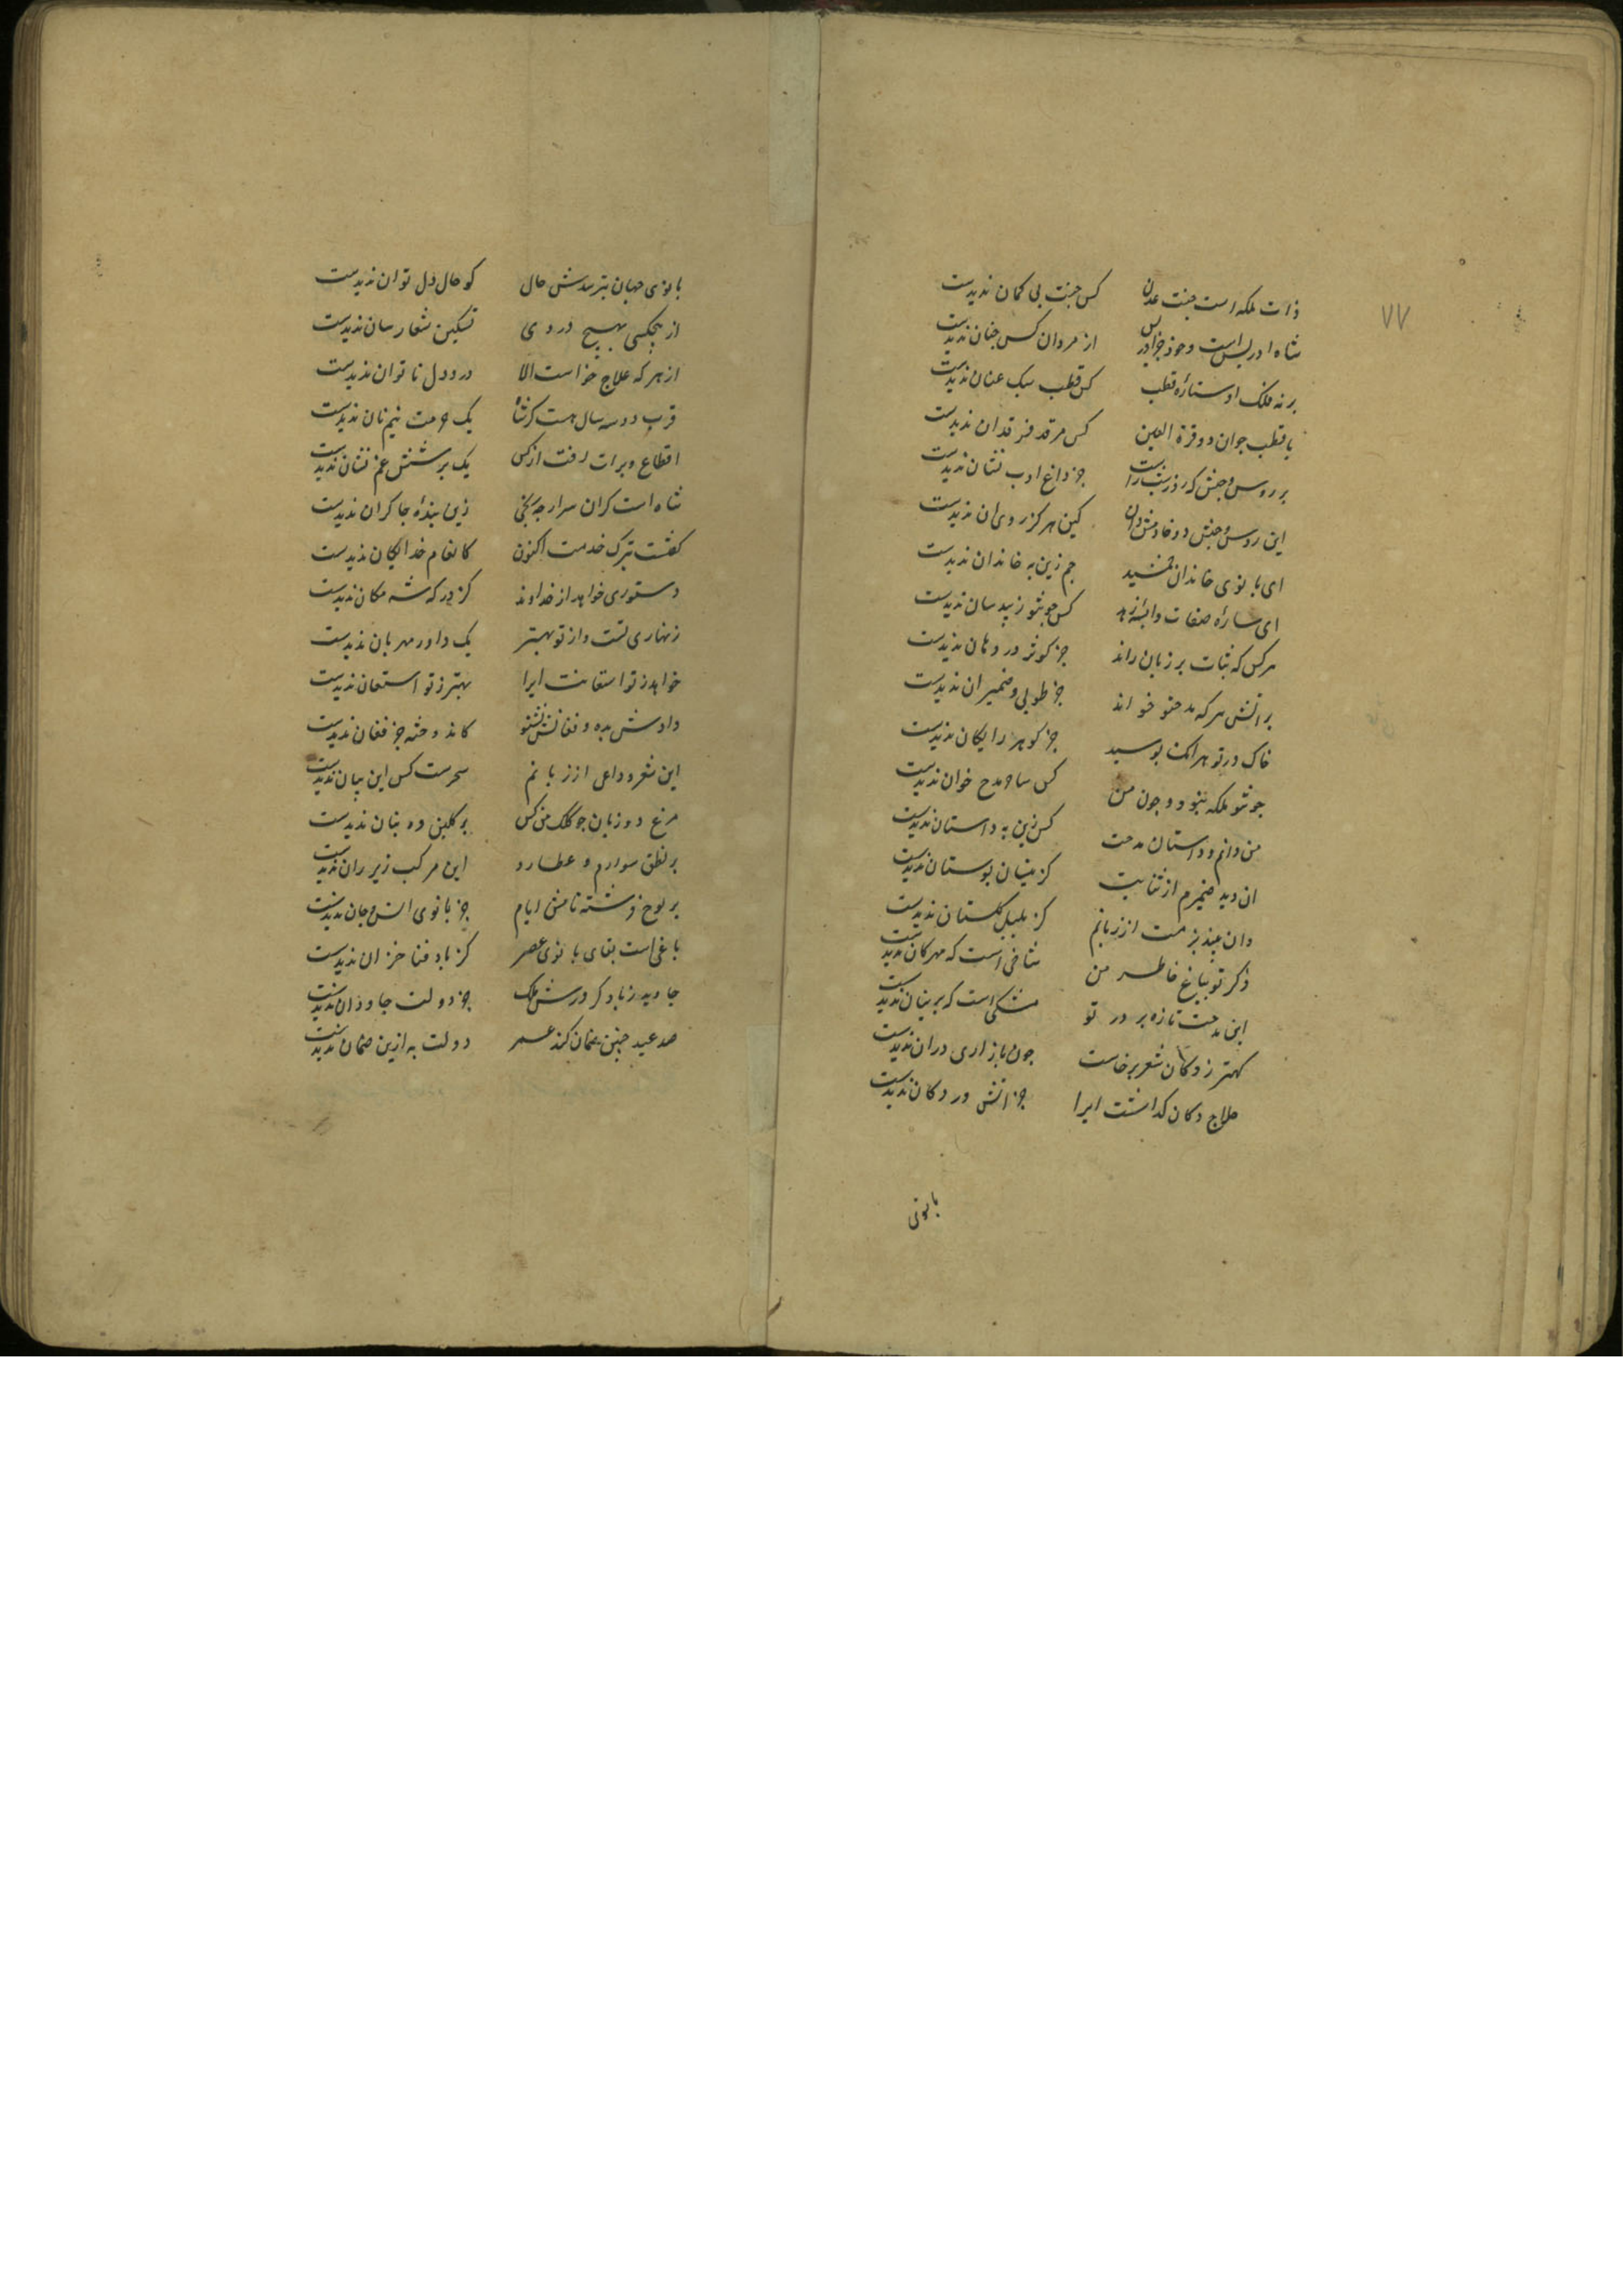 ۷۷
ذات ملکه است جنت عدن کس جنت بی کمان ندیدست
شاه ادریس است وخوذ جزادریس از مردان کس جنان ندیدست
بر نه فلک او ستارۀ قطب کس قطب سبک عنان ندیدست
با قطب جوان دو قرة العین کس مرقد فرقدان ندیدست
بر روس وحبش که روز وشب راست جز داغ ادب نشان ندیدست
این روس وحبش دو خادمش دان کین هرکز روی ان ندیدست
ای بانوی خاندان جمشید جم زین به خاندان ندیدست
ای سارۀ صفات واسیه زهد کس جونتو زبیده سان ندیدست
هرکس که ثنات بر زبان راند جز کوثر در دهان ندیدست
براتش هرکه مدحتو خواند جز طوبی وضمیران ندیدست
خاک در تو هرانک بوسید جز کوهر رایکان ندیدست
جونتو ملکه نبود و جون من کس ساحر مدح خوان ندیدست
من دانم و داستان مدحت کس زین به داستان ندیدست
ان دید ضمیرم از ثنایت کز نیسان بوستان ندیدست
وان بیند بزمت از زبانم کز بلبل کلستان ندیدست
ذکر تو بباغ خاطر من شاخی است که مهرکان ندیدست
این مدحت تازه بر در تو مشکی است که پرنیان ندیدست
کهتر ز دکان شعر برخاست جون بازاری دران ندیدست
حلاج دکان کذاشت ایرا جز اتش در دکان ندیدست
بانوی
بانوی جهان بپرسدش حال کو حال دل توان ندیدست
از هیجکسی بهیج دردی تسکین شفا رسان ندیدست
از هر که علاج خواست الا درد دل ناتوان ندیدست
قرب دو سه سال هست کز شاه یک حرمت نیم نان ندیدست
اقطاع وبرات رفت وازکس یک پرسش غم نشان ندیدست
شاه است کران سر ارجه رنجی زین بندۀ جاکران ندیدست
کفتست بترک خدمت اکنون کانعام خدایکان ندیدست
دستوری خواهد از خداوند کز درکه شه مکان ندیدست
زنهاری تست واز تو بهتر یک داور مهربان ندیدست
خواهد ز تو استعانت ایرا بهتر ز تو استعان ندیدست
دادش بده و فغانش بشنو کاندوخته جز فغان ندیدست
این شعر وداعی از زبانم سحرست کس این بیان ندیدست
مرغ دو زبان جو کلک من کس بر کلبن ده بنان ندیدست
بر نطق سوارم و عطارد این مرکب زیر ران ندیدست
بر لوح نوشته نامش ایام جز بانوی انس وجان ندیدست
باغی است بقای بانوی عصر کز باد فنا خزان ندیدست
جاوید زیاد کز درش ملک جز دولت جاودان ندیدست
صد عید جنین ضمان کند عمر دولت به ازین ضمان ندیدست